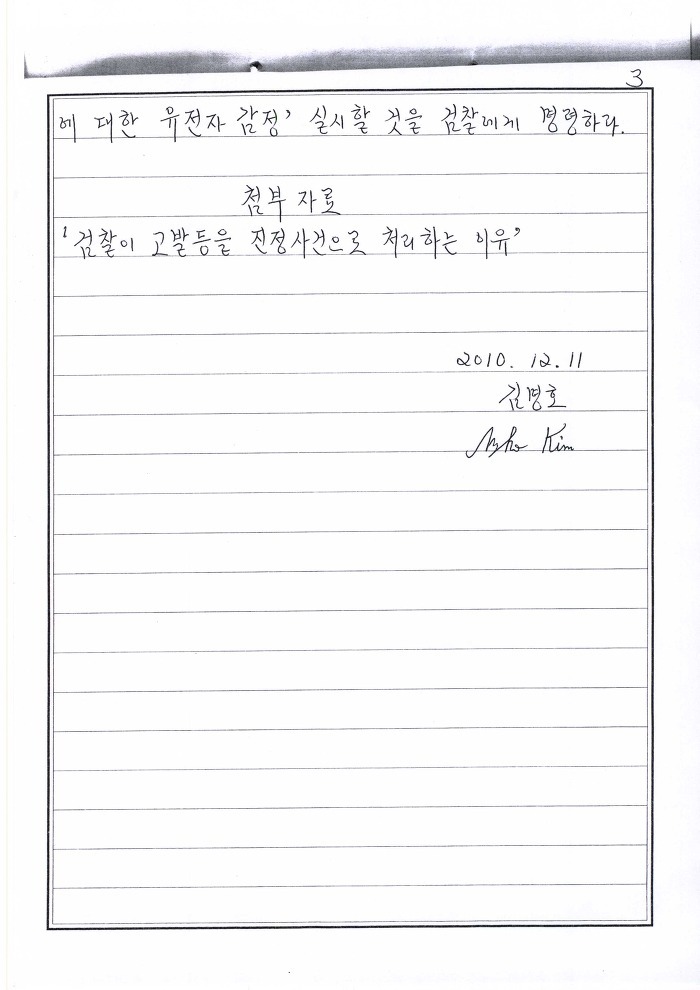 3
에 대한 유전자 감정’ 실시할 것을 검찰에게 명령하라.
첨부 자료
‘검찰이 고발등을 진정사건으로 처리하는 이유’
2010. 12. 11
김명호
Myho Kim